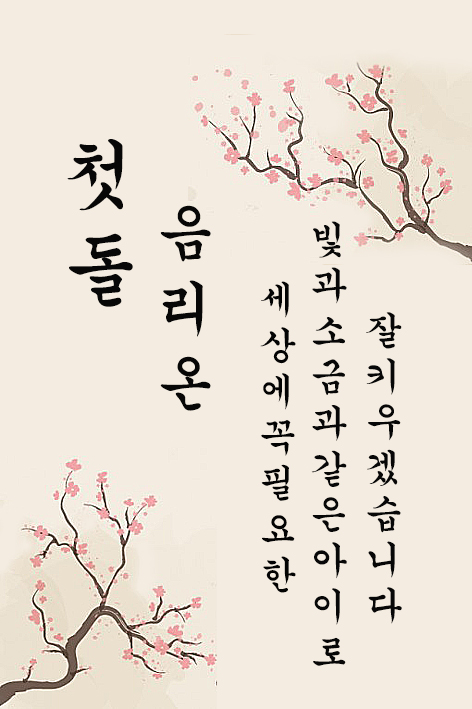 첫돌
음리온
세상에꼭필요한
빛과소금과같은아이로
잘키우겠습니다